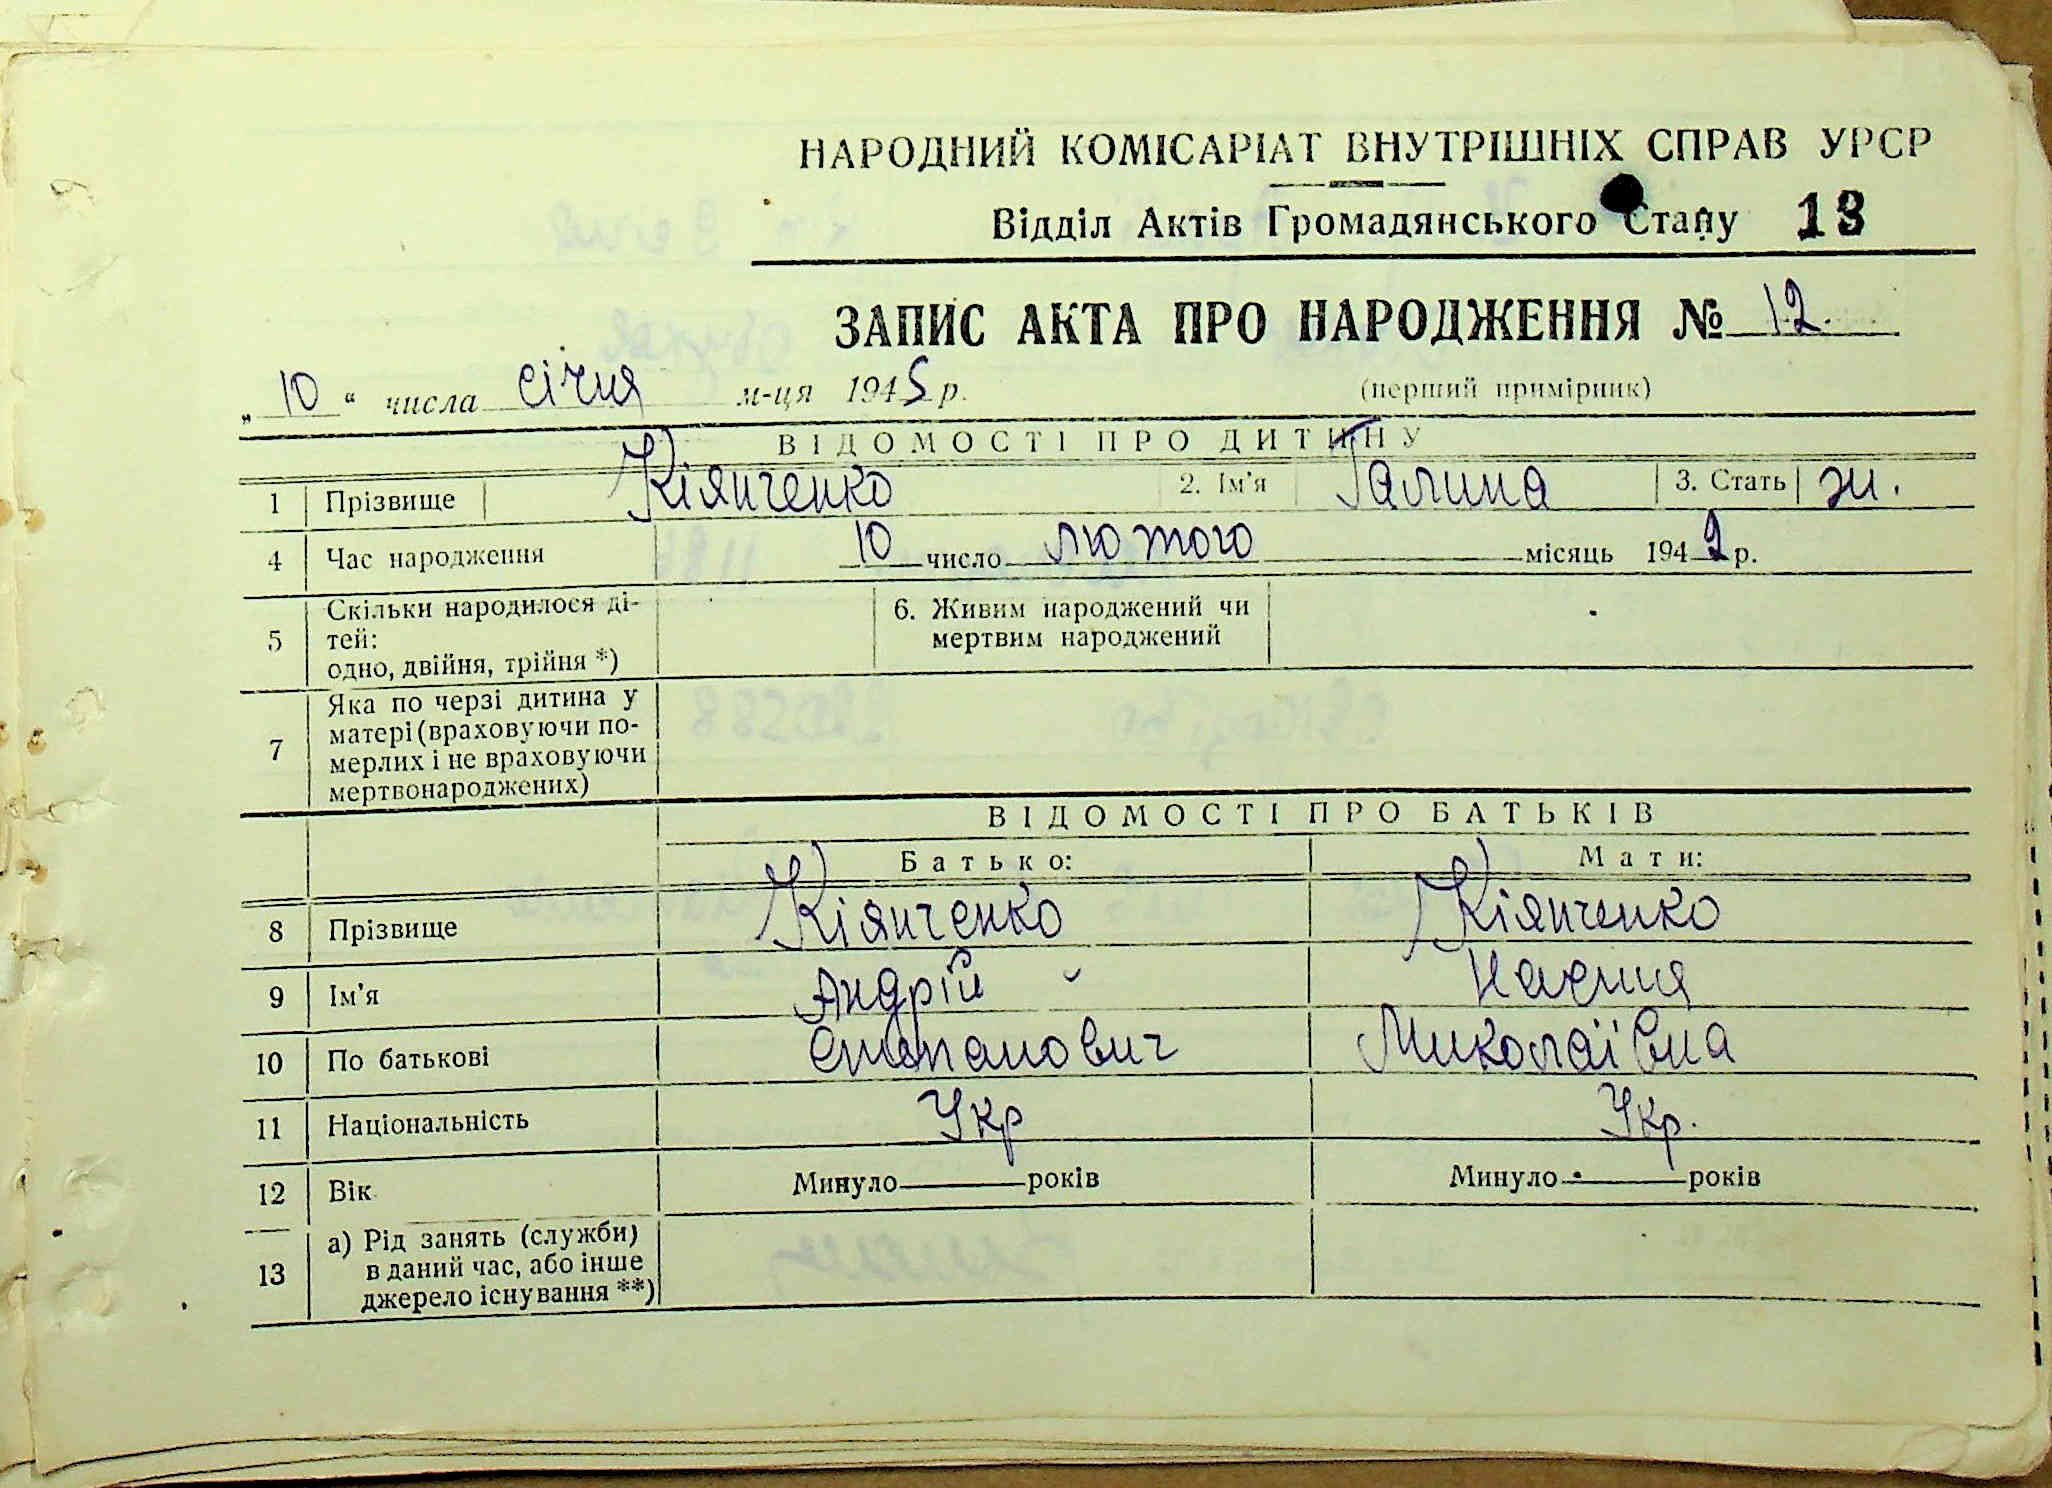 НАРОДНИЙ КОМІСАРІАТ ВНУТРІШНІХ СПРАВ УРСР
Відділ Актів Громадянського Стану 13
ЗАПИС АКТА ПРО НАРОДЖЕННЯ № 12.
„ 10 “ числа січня м-ця 1945 р. (перший примірник)
ВІДОМОСТІ ПРО ДИТИНУ
1 Прізвище Кіянченко 2. Ім'я Галина 3. Стать ж.
4 Час народження 10 число лютого місяць 1942 р.
5 Скільки народилося ді-
тей:
одно, двійня, трійня *)
6. Живим народжений чи
мертвим народжений
7 Яка по черзі дитина у
матері (враховуючи по-
мерлих і не враховуючи
мертвонароджених)
ВІДОМОСТІ ПРО БАТЬКІВ
Батько: Мати:
8 Прізвище Кіянченко Кіянченко
9 Ім'я Андрій
10 По батькові Степанович Миколаївна
11 Національність Укр Укр.
12 Вік Минуло років Минуло років
13 а) Рід занять (служби)
в даний час, або інше
джерело існування **)